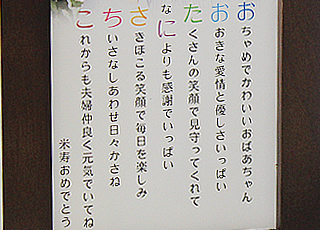 おちゃめでかわいいおばあちゃん
おおきな愛情と優しさいっぱい
たくさんの笑顔で見守ってくれて
なによりも感謝でいっぱい
さきほこる笑顔で毎日を楽しみ
ちいさなしあわせ日々かさね
これからも夫婦仲良く元気でいてね
米寿おめでとう